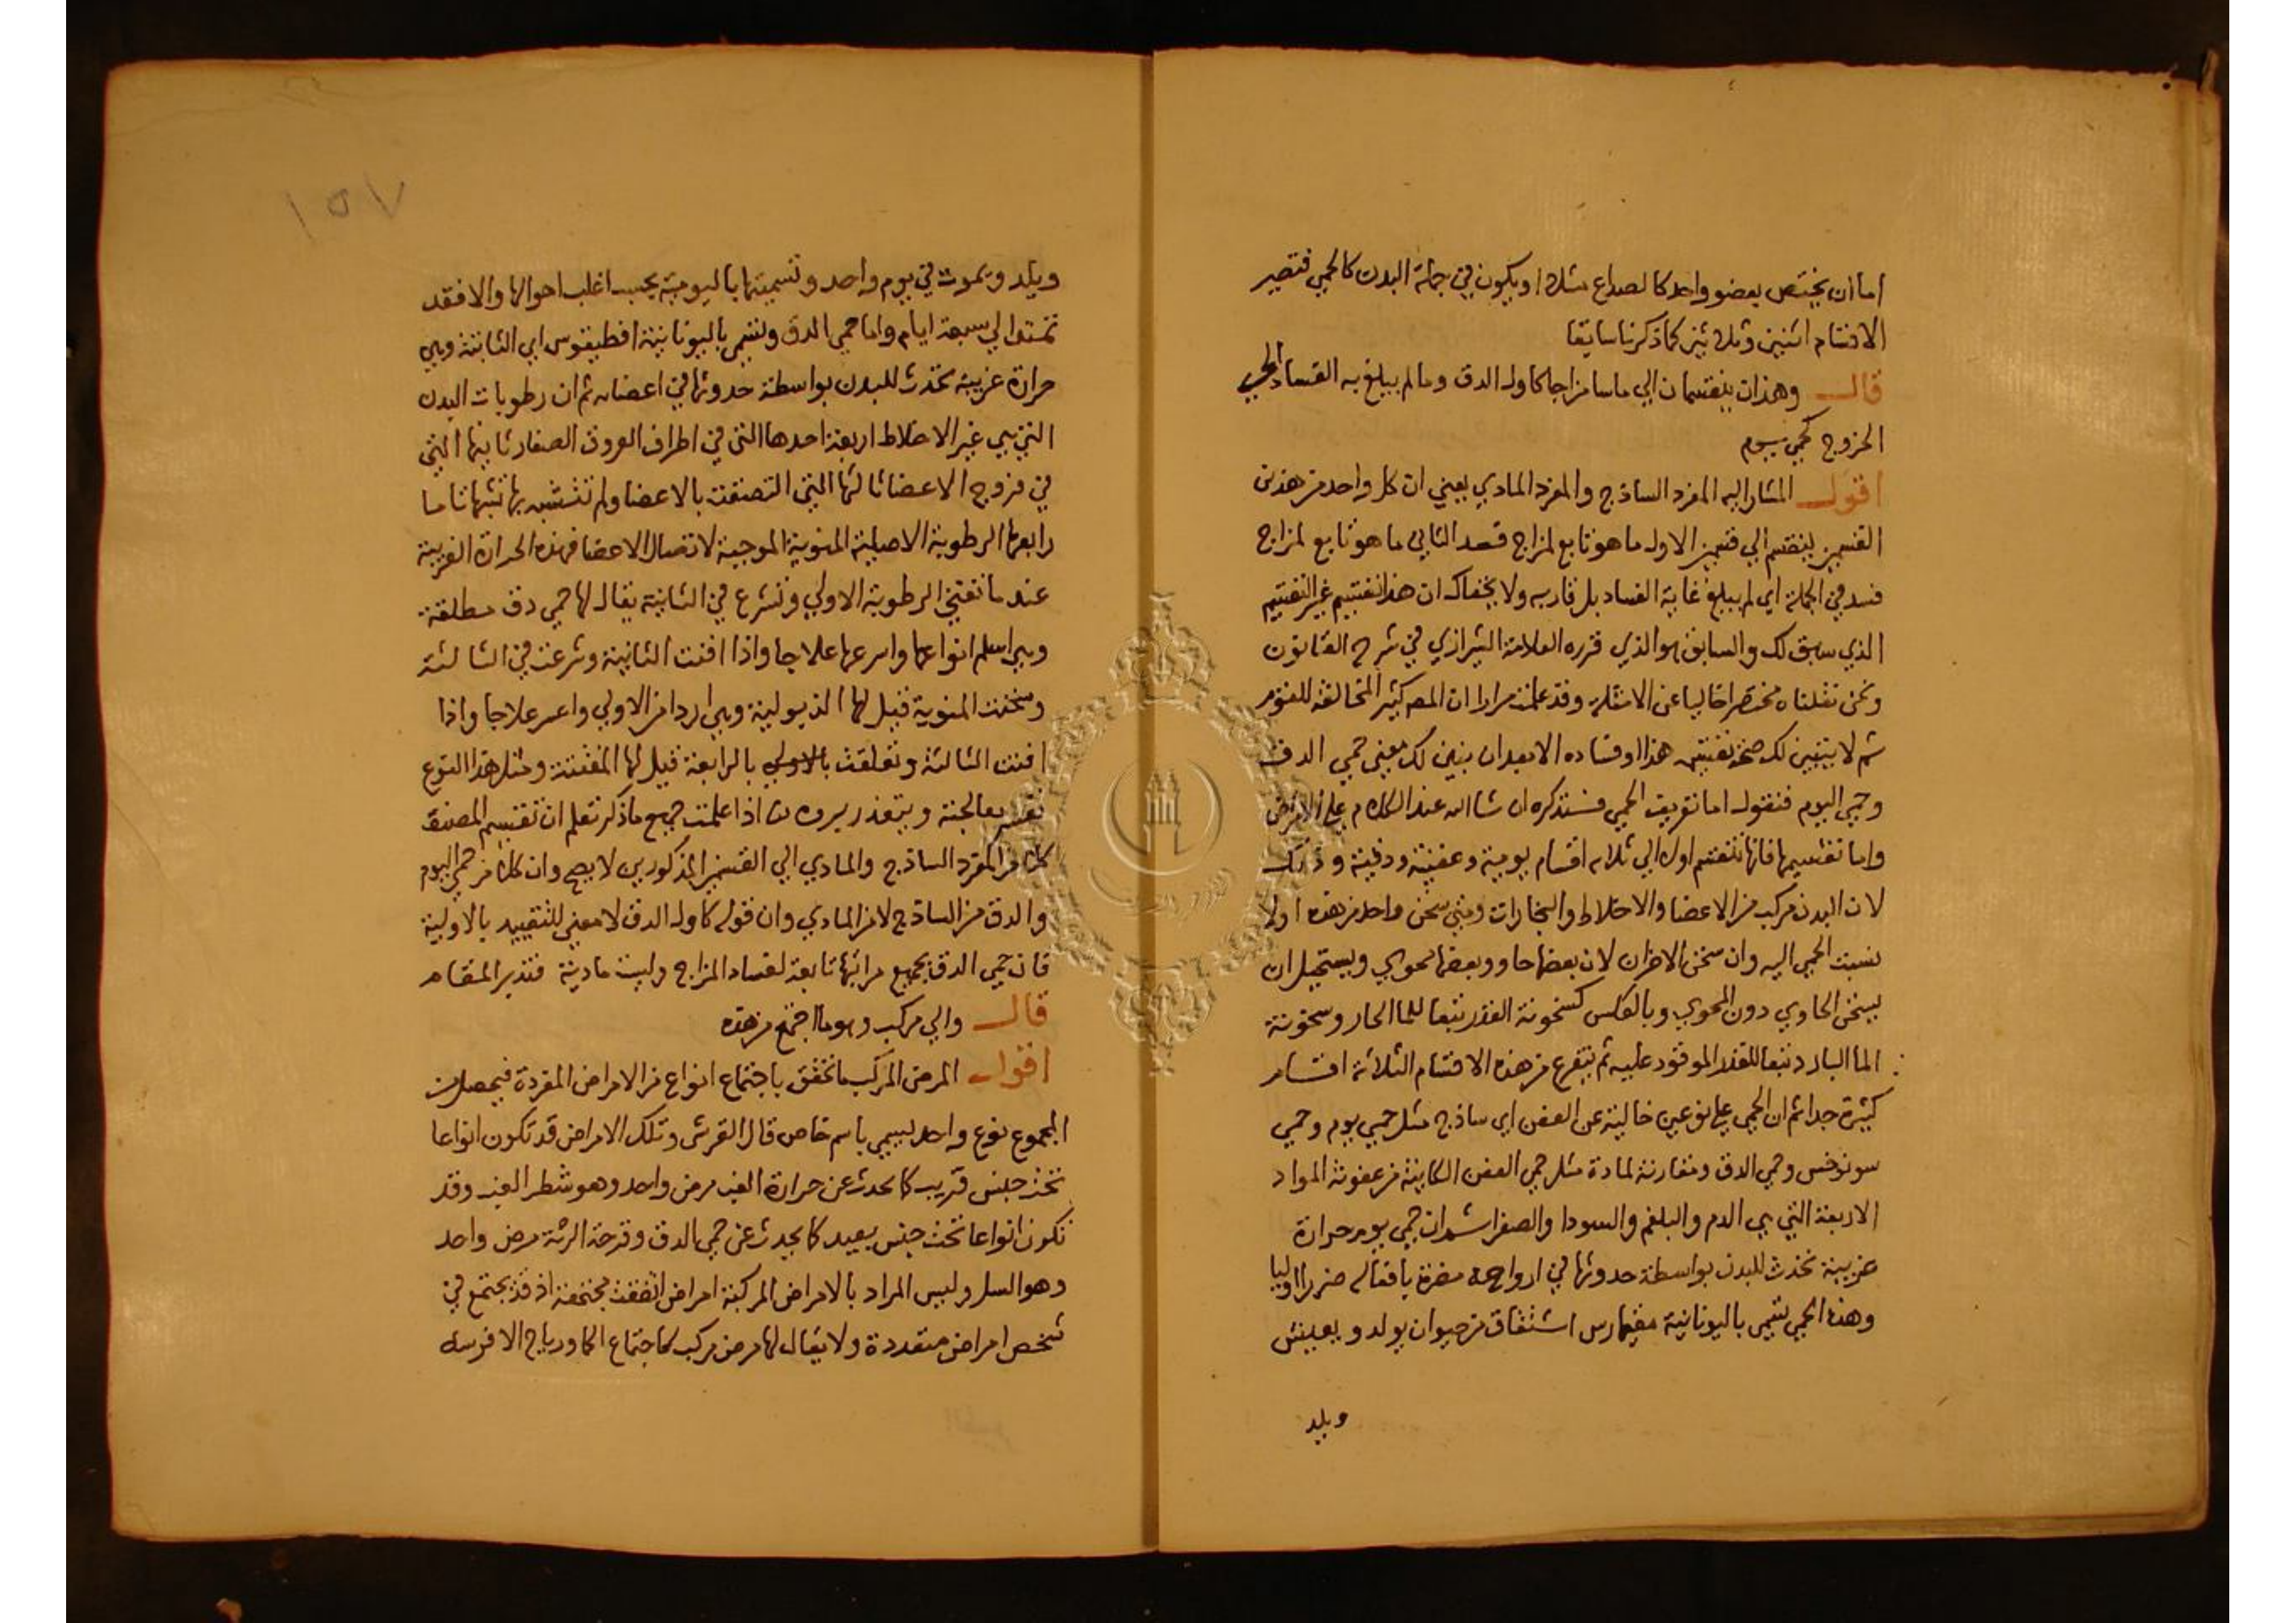 اما ان يختص بعضو واحد كالصداع مثلا او يكون في جملة البدن كالحمي فتصير
الاقسام اثنين وثلاثين كما ذكرنا سابقا
قال وهذان ينقسمان الي ما سا مزاجا كاول الدق وما لم يبلغ به الفساد الي
الخروج كحمي يوم
اقول المشار اليه المفرد الساذج والمفرد المادي يعني ان كل واحد من هذين
القسمين ينقسم الي قسمين الاول ما هو تابع لمزاج فسد الثاني ما هو تابع لمزاج
فسد في الجملة اي لم يبلغ غاية الفساد بل قاربه ولا يخفاك ان هذا تقسيم غير التقسيم
الذي سبق لك والسابق هو الذي قرره العلامة الشرازي في شرح القانون
ونحن نقلناه مختصرا خاليا عن الامثلة وقد علمت مرارا ان المص كثير المخالفة للقوم
ثم لا يتبين لك صحة تقسيمه هذا او فساده الا بعد ان يبين لك معني حمي الدق
وحمي اليوم فنقول اما تعريف الحمي فسنذكره ان شا الله عند الكلام علي الامراض
واما تقسيمها فانها تنقسم اولا الي ثلاثه اقسام يومية وعفنية ودقية وذلك
لان البدن مركب من الاعضا والاخلاط والبخارات ومتي سخن واحد من هذه اولا
نسبت الحمي اليه وان سخن الاخران لان بعضها حاو وبعضها محوي ويستحيل ان
يسخن الحاوي دون المحوي وبالعكس كسخونة القدر تبعا للما الحار وسخونة
الما البارد تبعا للقدر الموقود عليه ثم يتفرع من هذه الاقسام الثلاثة اقسام
كثيرة جدا ثم ان الحمي علي نوعين خالية عن العفن اي ساذج مثل حمي يوم وحمي
سونوخس وحمي الدق ومقارنة لمادة مثل حمي العفن الكاينة من عفونة المواد
الاربعة التي هي الدم والبلغم والسودا والصفرا ثم ان حمي يوم حرارة
غريبة تحدث للبدن بواسطة حدوثها في ارواحه مضرة بافعاله ضررا اوليا
وهذه الحمي تسمي باليونانية افيمارس اشتقاق من حيوان يولد ويعيش
ويلد
ويلد ويموت في يوم واحد وتسميتها باليومية بحسب اغلب احوالها والا فقد
تمتد الي سبعة ايام واما حمي الدق وتسمي باليونانية اقطيقوس اي الثابتة وهي
حرارة غريبة تحدث للبدن بواسطة حدوثها في اعضائه ثم ان رطوبات البدن
التي هي غير الاخلاط اربعة احدها التي في اطراف العروق الصغار ثانيها التي
في فروج الاعضا ثالثها التي التصقت بالاعضا ولم تتشبه بها تشبها تاما
رابعها الرطوبة الاصلية المنوية الموجبة لاتصال الاعضا فهذه الحرارة الغريبة
عند ما تفني الرطوبة الاولي وتشرع في الثانية يقال لها حمي دق مطلقة
وهي اسلم انواعها واسرعها علاجا واذا افنت الثانية وشرعت في الثالثة
وسخنت المنوية قيل لها الذبولية وهي اردا من الاولي واعسر علاجا واذا
افنت الثالثة وتعلقت بالاولي بالرابعة قيل لها المفتتة ومثل هذا النوع
تعسر معالجته ويتعذر بروه اذا علمت جميع ما ذكر تعلم ان تقسيم المصنف
كلا من المفرد الساذج والمادي الي القسمين المذكورين لا يصح وان كلا من حمي اليوم
والدق من الساذج لا من المادي وان قوله كاول الدق لا معني للتقييد بالاولية
فان حمي الدق بجميع مراتبها تابعة لفساد المزاج وليست مادية فتدبر المقام
قال والي مركب وهو ما اجتمع من هذه
اقول المرض المركب ما تحقق باجتماع انواع من الامراض المفردة فيحصل من
المجموع نوع واحد يسمي باسم خاص قال القرشي وتلك الامراض قد تكون انواعا
تحت جنس قريب كما يحدث عن حرارة الغب مرض واحد وهو شطر الغب وقد
تكون انواعا تحت جنس بعيد كما يحدث عن حمي الدق وقرحة الرئة مرض واحد
وهو السل وليس المراد بالامراض المركبة امراض اتفقت مجتمعة اذ قد يجتمع في
شخص امراض متعددة ولا يقال لها مرض مركب كاجتماع الما ورياح الافرسه
١٥٧